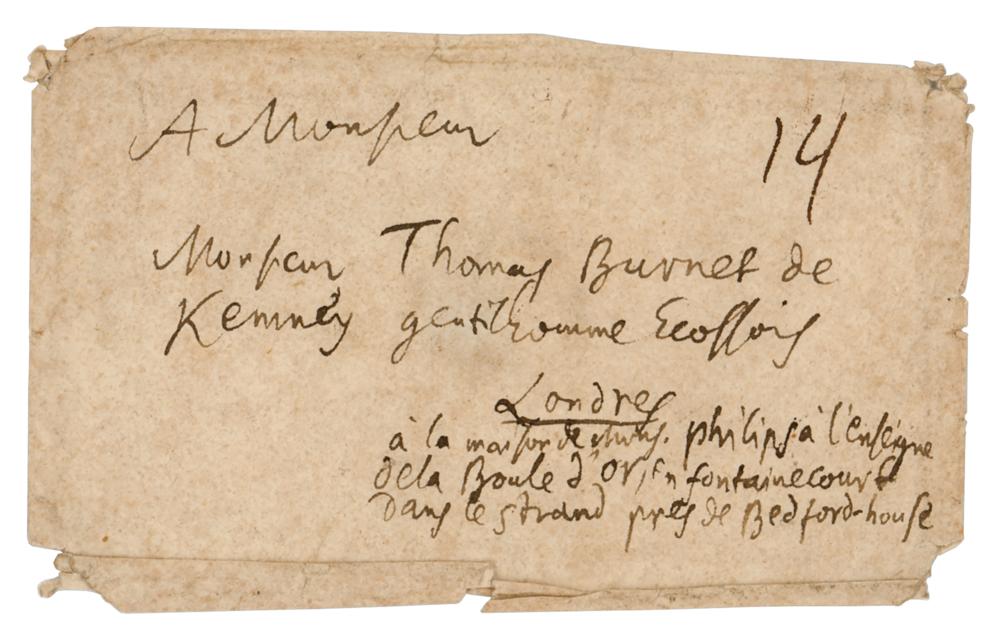 A Monsieur
14
Monsieur Thomas Burnet de
Kemney gentilhomme Ecossois
Londres
à la maison de philips à l'enseigne
de la Boule d'Or, en fontaine court
Dans le strand pres de Bedford-house